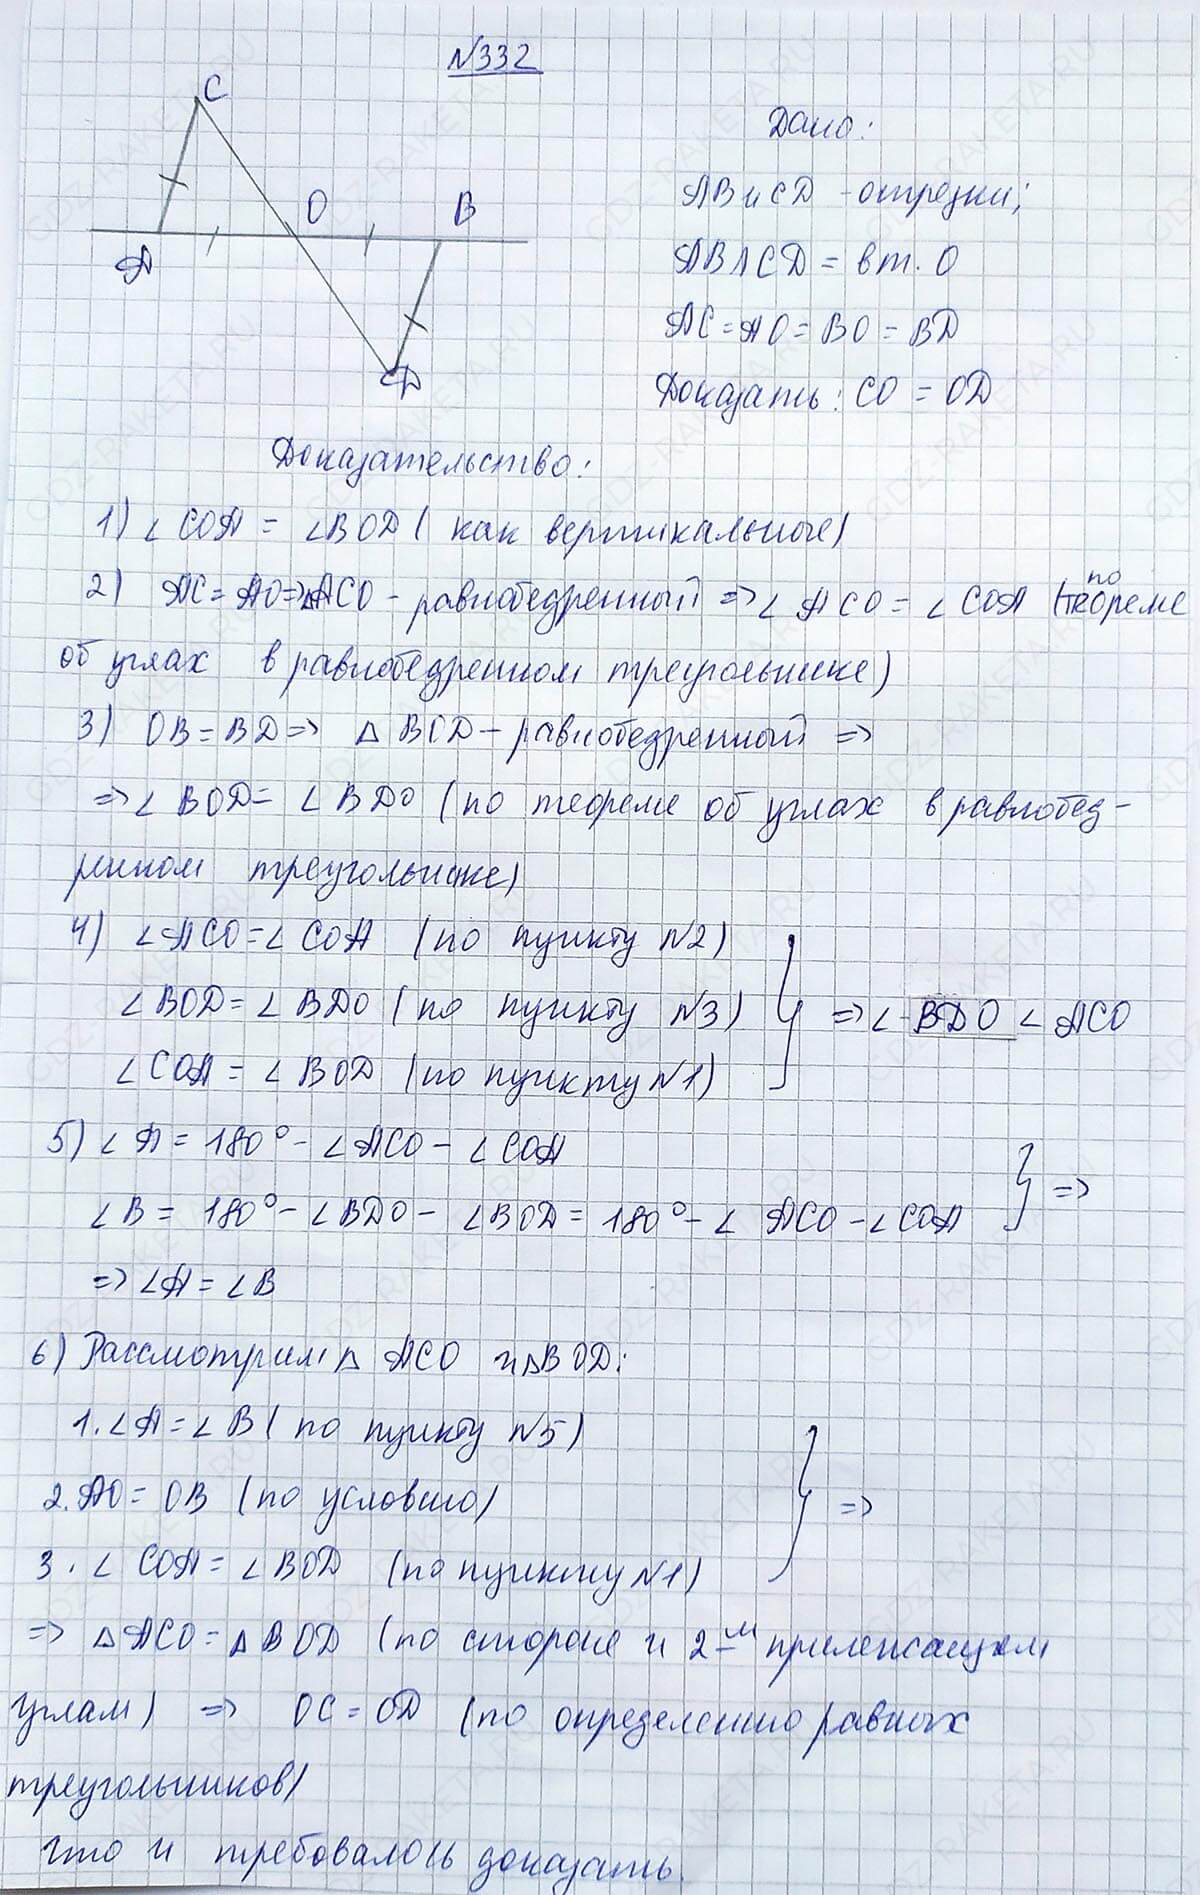 №332
C
O
B
A
D
Дано:
AB и CD - отрезки;
AB ∩ CD = в т. O
AC = AO = BO = BD
Доказать: CO = OD
Доказательство:
1) ∠COA = ∠BOD (как вертикальные)
2) AC = AO => △ACO - равнобедренный => ∠ACO = ∠COA (по теореме
об углах в равнобедренном треугольнике)
3) OB = BD => △BOD - равнобедренный =>
=> ∠BOD = ∠BDO (по теореме об углах в равнобед-
ренном треугольнике)
4) ∠ACO = ∠COA (по пункту №2)
∠BOD = ∠BDO (по пункту №3) } => ∠BDO ∠ACO
∠COA = ∠BOD (по пункту №1)
5) ∠A = 180° - ∠ACO - ∠COA
∠B = 180° - ∠BDO - ∠BOD = 180° - ∠ACO - ∠COA } =>
=> ∠A = ∠B
6) Рассмотрим △ACO и △BOD:
1. ∠A = ∠B (по пункту №5)
2. AO = OB (по условию) } =>
3. ∠COA = ∠BOD (по пункту №1)
=> △ACO = △BOD (по стороне и 2-м прилежащим
углам) => OC = OD (по определению равных
треугольников)
Что и требовалось доказать.
GDZ-RAKETA.RU